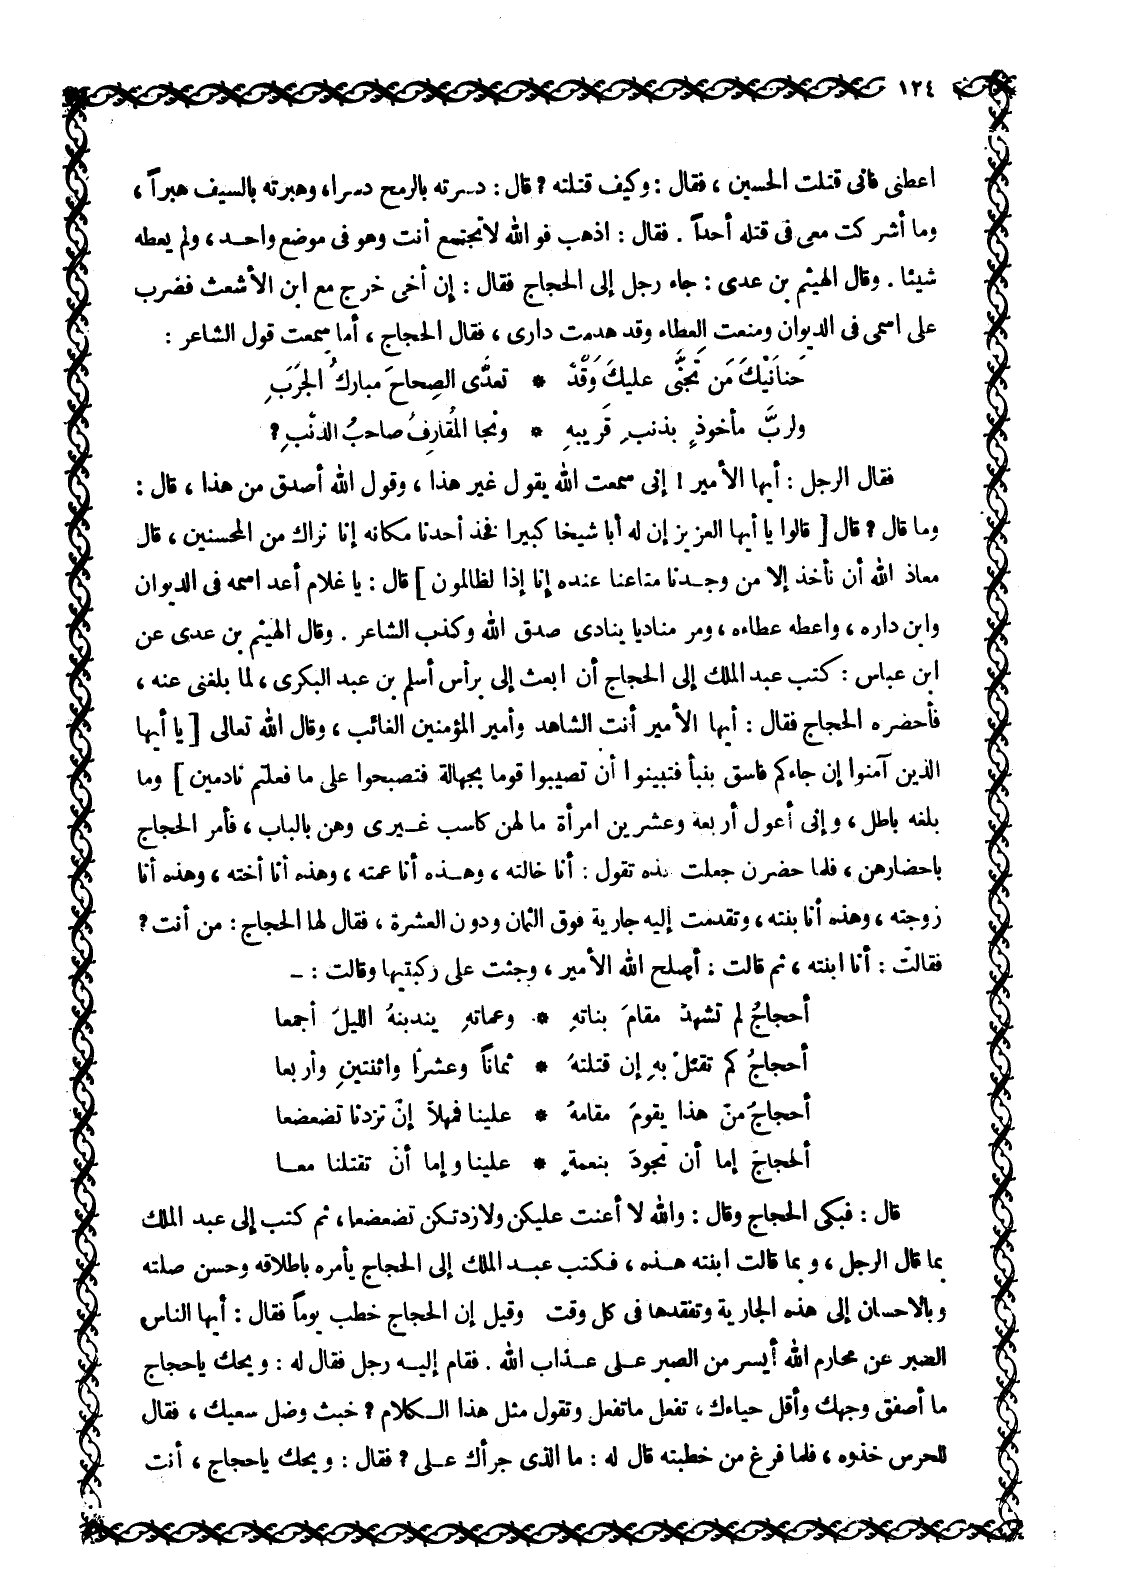 ١٢٤
اعطنى فانى قتلت الحسين ، فقال : وكيف قتلته ? قال : دسرته بالرمح دسرا، وهبرته بالسيف هبراً ،
وما أشركت معى فى قتله أحداً . فقال : اذهب فو الله لا تجتمع أنت وهو فى موضع واحد ، ولم يعطه
شيئا . وقال الهيثم بن عدى : جاء رجل إلى الحجاج فقال : إن أخى خرج مع ابن الأشعث فضرب
على اسمى فى الديوان ومنعت العطاء وقد هدمت دارى ، فقال الحجاج ، أما سمعت قول الشاعر :
حَنانَيْكَ مَن تَجَنَّى عليكَ وَقَدْ * تعدَّى الصِحاحَ مباركُ الجَرَبِ
ولربَّ مأخوذٍ بذنبِ قَريبهِ * ونجا المُقارِفُ صاحبُ الذنْبِ ?
فقال الرجل : أيها الأمير ! إنى سمعت الله يقول غير هذا ، وقول الله أصدق من هذا ، قال :
وما قال ? قال [ قالوا يا أيها العزيز إن له أبا شيخا كبيرا فخذ أحدنا مكانه إنا نراك من المحسنين ، قال
معاذ الله أن نأخذ إلا من وجدنا متاعنا عنده إنا إذا لظالمون ] قال : يا غلام أعد اسمه فى الديوان
وابن داره ، واعطه عطاءه ، ومر مناديا ينادى صدق الله وكذب الشاعر . وقال الهيثم بن عدى عن
ابن عباس : كتب عبد الملك إلى الحجاج أن ابعث إلى برأس أسلم بن عبد البكرى ، لما بلغنى عنه ،
فأحضره الحجاج فقال : أيها الأمير أنت الشاهد وأمير المؤمنين الغائب ، وقال الله تعالى [ يا أيها
الذين آمنوا إن جاءكم فاسق بنبأ فتبينوا أن تصيبوا قوما بجهالة فتصبحوا على ما فعلتم نادمين ] وما
بلغه باطل ، وإنى أعول أربعة وعشرين امرأة ما لهن كاسب غيرى وهن بالباب ، فأمر الحجاج
باحضارهن ، فلما حضرن جعلت هذه تقول : أنا خالته ، وهذه أنا عمته ، وهذه أنا أخته ، وهذه أنا
زوجته ، وهذه أنا بنته ، وتقدمت إليه جارية فوق الثمان ودون العشرة ، فقال لها الحجاج : من أنت ?
فقالت : أنا ابنته ، ثم قالت : أصلح الله الأمير ، وجثت على ركبتيها وقالت : -
أحجاجُ لم تشهدْ مقامَ بناتهِ * وعماتهِ يندبنهُ الليلَ أجمعا
أحجاجُ كم تقتلْ بهِ إن قتلتهَ * ثماناً وعشرًا واثنتينِ وأربعا
أحجاجُ منْ هذا يقومَ مقامهُ * علينا فمهلاً إنْ تزدنا تضعضعا
أحجاجَ إما أن تجودَ بنعمةٍ * علينا وإما أنْ تقتلنا معا
قال : فبكى الحجاج وقال : والله لا أعنت عليكن ولا زدتكن تضعضعا ، ثم كتب إلى عبد الملك
بما قال الرجل ، وبما قالت ابنته هذه ، فكتب عبد الملك إلى الحجاج يأمره باطلاقه وحسن صلته
وبالاحسان إلى هذه الجارية وتفقدها فى كل وقت وقيل إن الحجاج خطب يوماً فقال : أيها الناس
الصبر عن محارم الله أيسر من الصبر على عذاب الله . فقام إليه رجل فقال له : ويحك ياحجاج
ما أصفق وجهك وأقل حياءك ، تفعل ماتفعل وتقول مثل هذا الكلام ? خبث وضل سعيك ، فقال
للحرس خذوه ، فلما فرغ من خطبته قال له : ما الذى جرأك على ? فقال : ويحك ياحجاج ، أنت